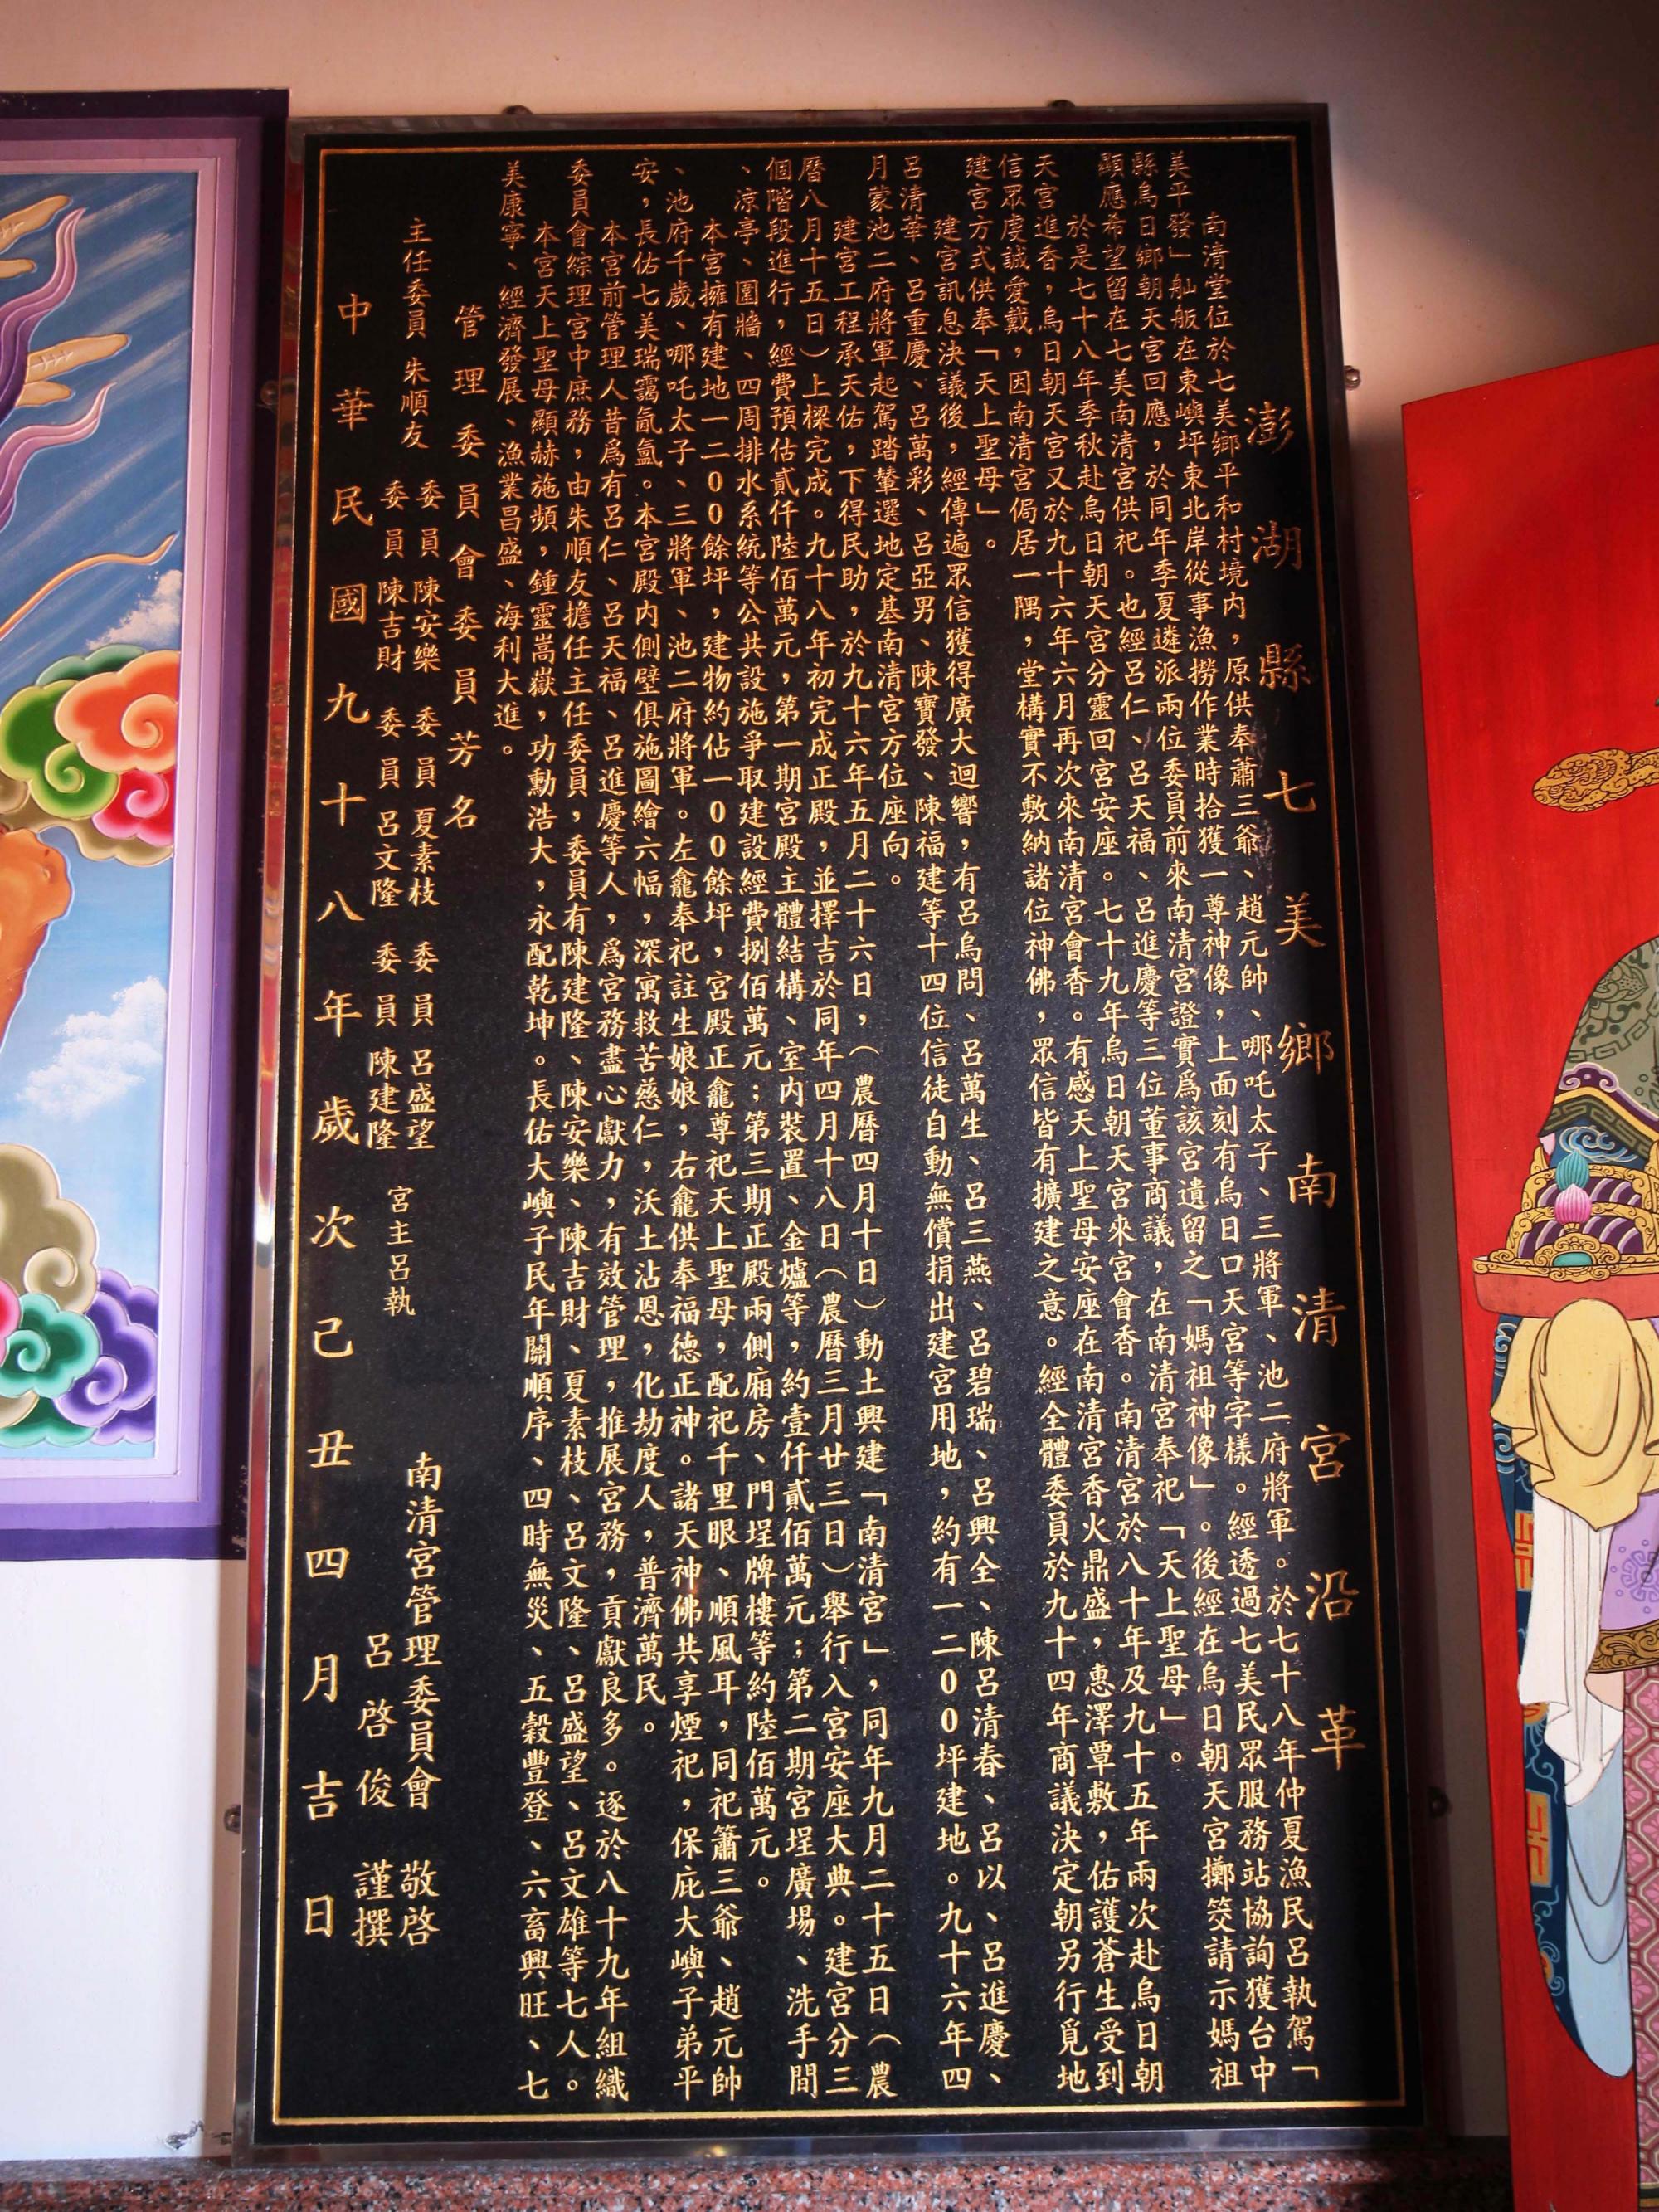 澎湖縣七美鄉南清宮沿革
南清堂位於七美鄉平和村境內，原供奉蕭三爺、趙元帥、哪吒太子、三將軍、池二府將軍。於七十八年仲夏漁民呂執駕「
美平發」舢舨在東嶼坪東北岸從事漁撈作業時拾獲一尊神像，上面刻有烏日口天宮等字樣。經透過七美民眾服務站協詢獲台中
縣烏日鄉朝天宮回應，於同年季夏遴派兩位委員前來南清宮證實為該宮遺留之「媽祖神像」。後經在烏日朝天宮擲筊請示媽祖
顯應希望留在七美南清宮供祀。也經呂仁、呂天福、呂進慶等三位董事商議，在南清宮奉祀「天上聖母」。
於是七十八年季秋赴烏日朝天宮分靈回宮安座。七十九年烏日朝天宮來宮會香。南清宮於八十年及九十五年兩次赴烏日朝
天宮進香，烏日朝天宮又於九十六年六月再次來南清宮會香。有感天上聖母安座在南清宮香火鼎盛，惠澤覃敷，佑護蒼生受到
信眾虔誠愛戴，因南清宮侷居一隅，堂構實不敷納諸位神佛，眾信皆有擴建之意。經全體委員於九十四年商議決定朝另行覓地
建宮方式供奉「天上聖母」。
建宮訊息決議後，經傳遍眾信獲得廣大迴響，有呂烏問、呂萬生、呂三燕、呂碧瑞、呂興全、陳呂清春、呂以、呂進慶、
呂清華、呂重慶、呂萬彩、呂亞男、陳寶發、陳福建等十四位信徒自動無償捐出建宮用地，約有一二００坪建地。九十六年四
月蒙池二府將軍起駕踏輦選地定基南清宮方位座向。
建宮工程承天佑，下得民助，於九十六年五月二十六日，（農曆四月十日）動土興建「南清宮」，同年九月二十五日（農
曆八月十五日）上樑完成。九十八年初完成正殿，並擇吉於同年四月十八日（農曆三月廿三日）舉行入宮安座大典。建宮分三
個階段進行，經費預估貳仟陸佰萬元，第一期宮殿主體結構、室內裝置、金爐等，約壹仟貳佰萬元；第二期宮埕廣場、洗手間
、涼亭、圍牆、四周排水系統等公共設施爭取建設經費捌佰萬元；第三期正殿兩側廂房、門埕牌樓等約陸佰萬元。
本宮擁有建地一二００餘坪，建物約佔一００餘坪，宮殿正龕尊祀天上聖母，配祀千里眼、順風耳，同祀簫三爺、趙元帥
、池府千歲、哪吒太子、三將軍、池二府將軍。左龕奉祀註生娘娘，右龕供奉福德正神。諸天神佛共享煙祀，保庇大嶼子弟平
安，長佑七美瑞靄氤氳。本宮殿內側壁俱施圖繪六幅，深寓救苦慈仁，沃土沾恩，化劫度人，普濟萬民。
本宮前管理人昔為有呂仁、呂天福、呂進慶等人，為宮務盡心獻力，有效管理，推展宮務，貢獻良多。逐於八十九年組織
委員會綜理宮中庶務，由朱順友擔任主任委員，委員有陳建隆、陳安樂、陳吉財、夏素枝、呂文隆、呂盛望、呂文雄等七人。
本宮天上聖母顯赫施頻，鍾靈嵩嶽，功勳浩大，永配乾坤。長佑大嶼子民年關順序、四時無災、五穀豐登、六畜興旺、七
美康寧、經濟發展、漁業昌盛、海利大進。
管理委員會委員芳名
主任委員 朱順友 委員 陳安樂 委員 夏素枝 委員 呂盛望
委員 陳吉財 委員 呂文隆 委員 陳建隆
宮主呂執
南清宮管理委員會 敬啓
呂啓俊 謹撰
中華民國九十八年歲次己丑四月吉日